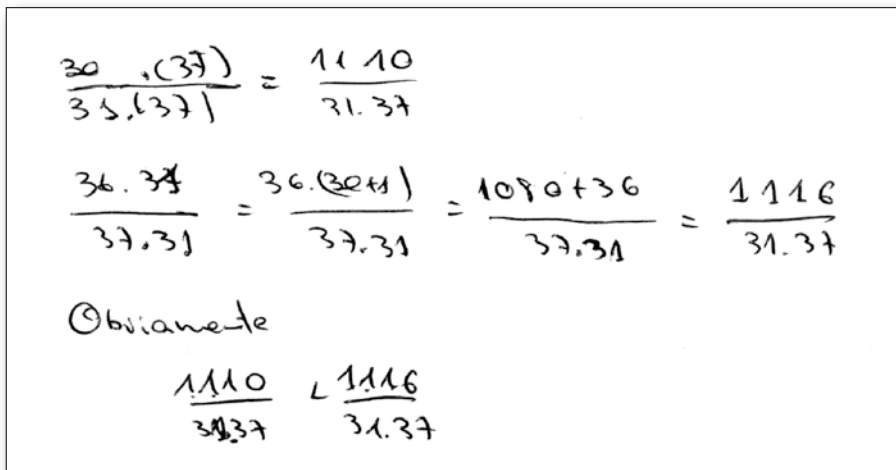 30 .(37) / 31.(37) = 1110 / 31.37
36.31 / 37.31 = 36.(30+1) / 37.31 = 1080+36 / 37.31 = 1116 / 31.37
Obviamente
1110 / 31.37 < 1116 / 31.37